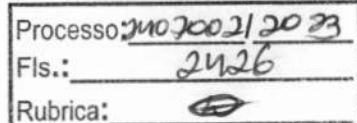 Processo: 2402002/2023
Fls.: 2426
Rubrica: